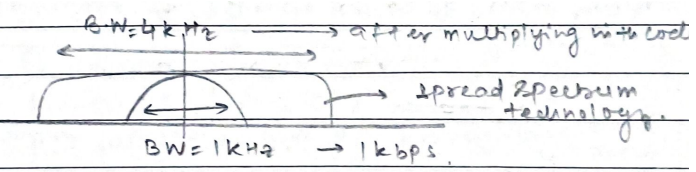 B.W=4kHz → after multiplying with cod
→ spread spectrum
technology.
BW=1kHz → 1kbps.